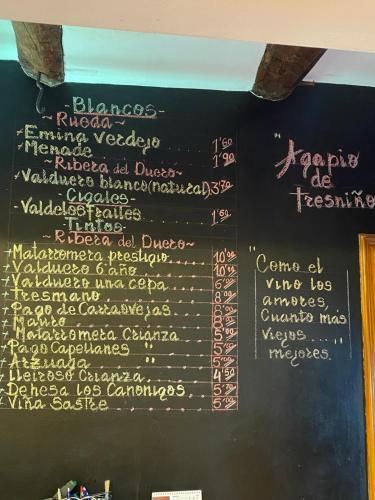 -Blancos-
~Rueda~
-Emina verdejo 1'60
-Menade 1'90
~Ribera del Duero~
-Valduero blanco(natural) 3'70
Cigales
-Valdelosfrailes 1'60
Tintos
~Ribera del Duero~
-Matarromera prestigio 10'00
-Valduero 6 año 10'00
-Valduero una cepa
-Tresmano 8'00
-Pago de Carraovejas
-Mauro
-Matarromera Crianza 5'00
-Pago Capellanes "
-Arzuaga "
-Lleiroso Crianza 4'50
-Dehesa los Canonigos
-Viña Sastre
"Agapio
de
Tresniño
"Como el
vino los
amores,
Cuanto más
viejos....
mejores."